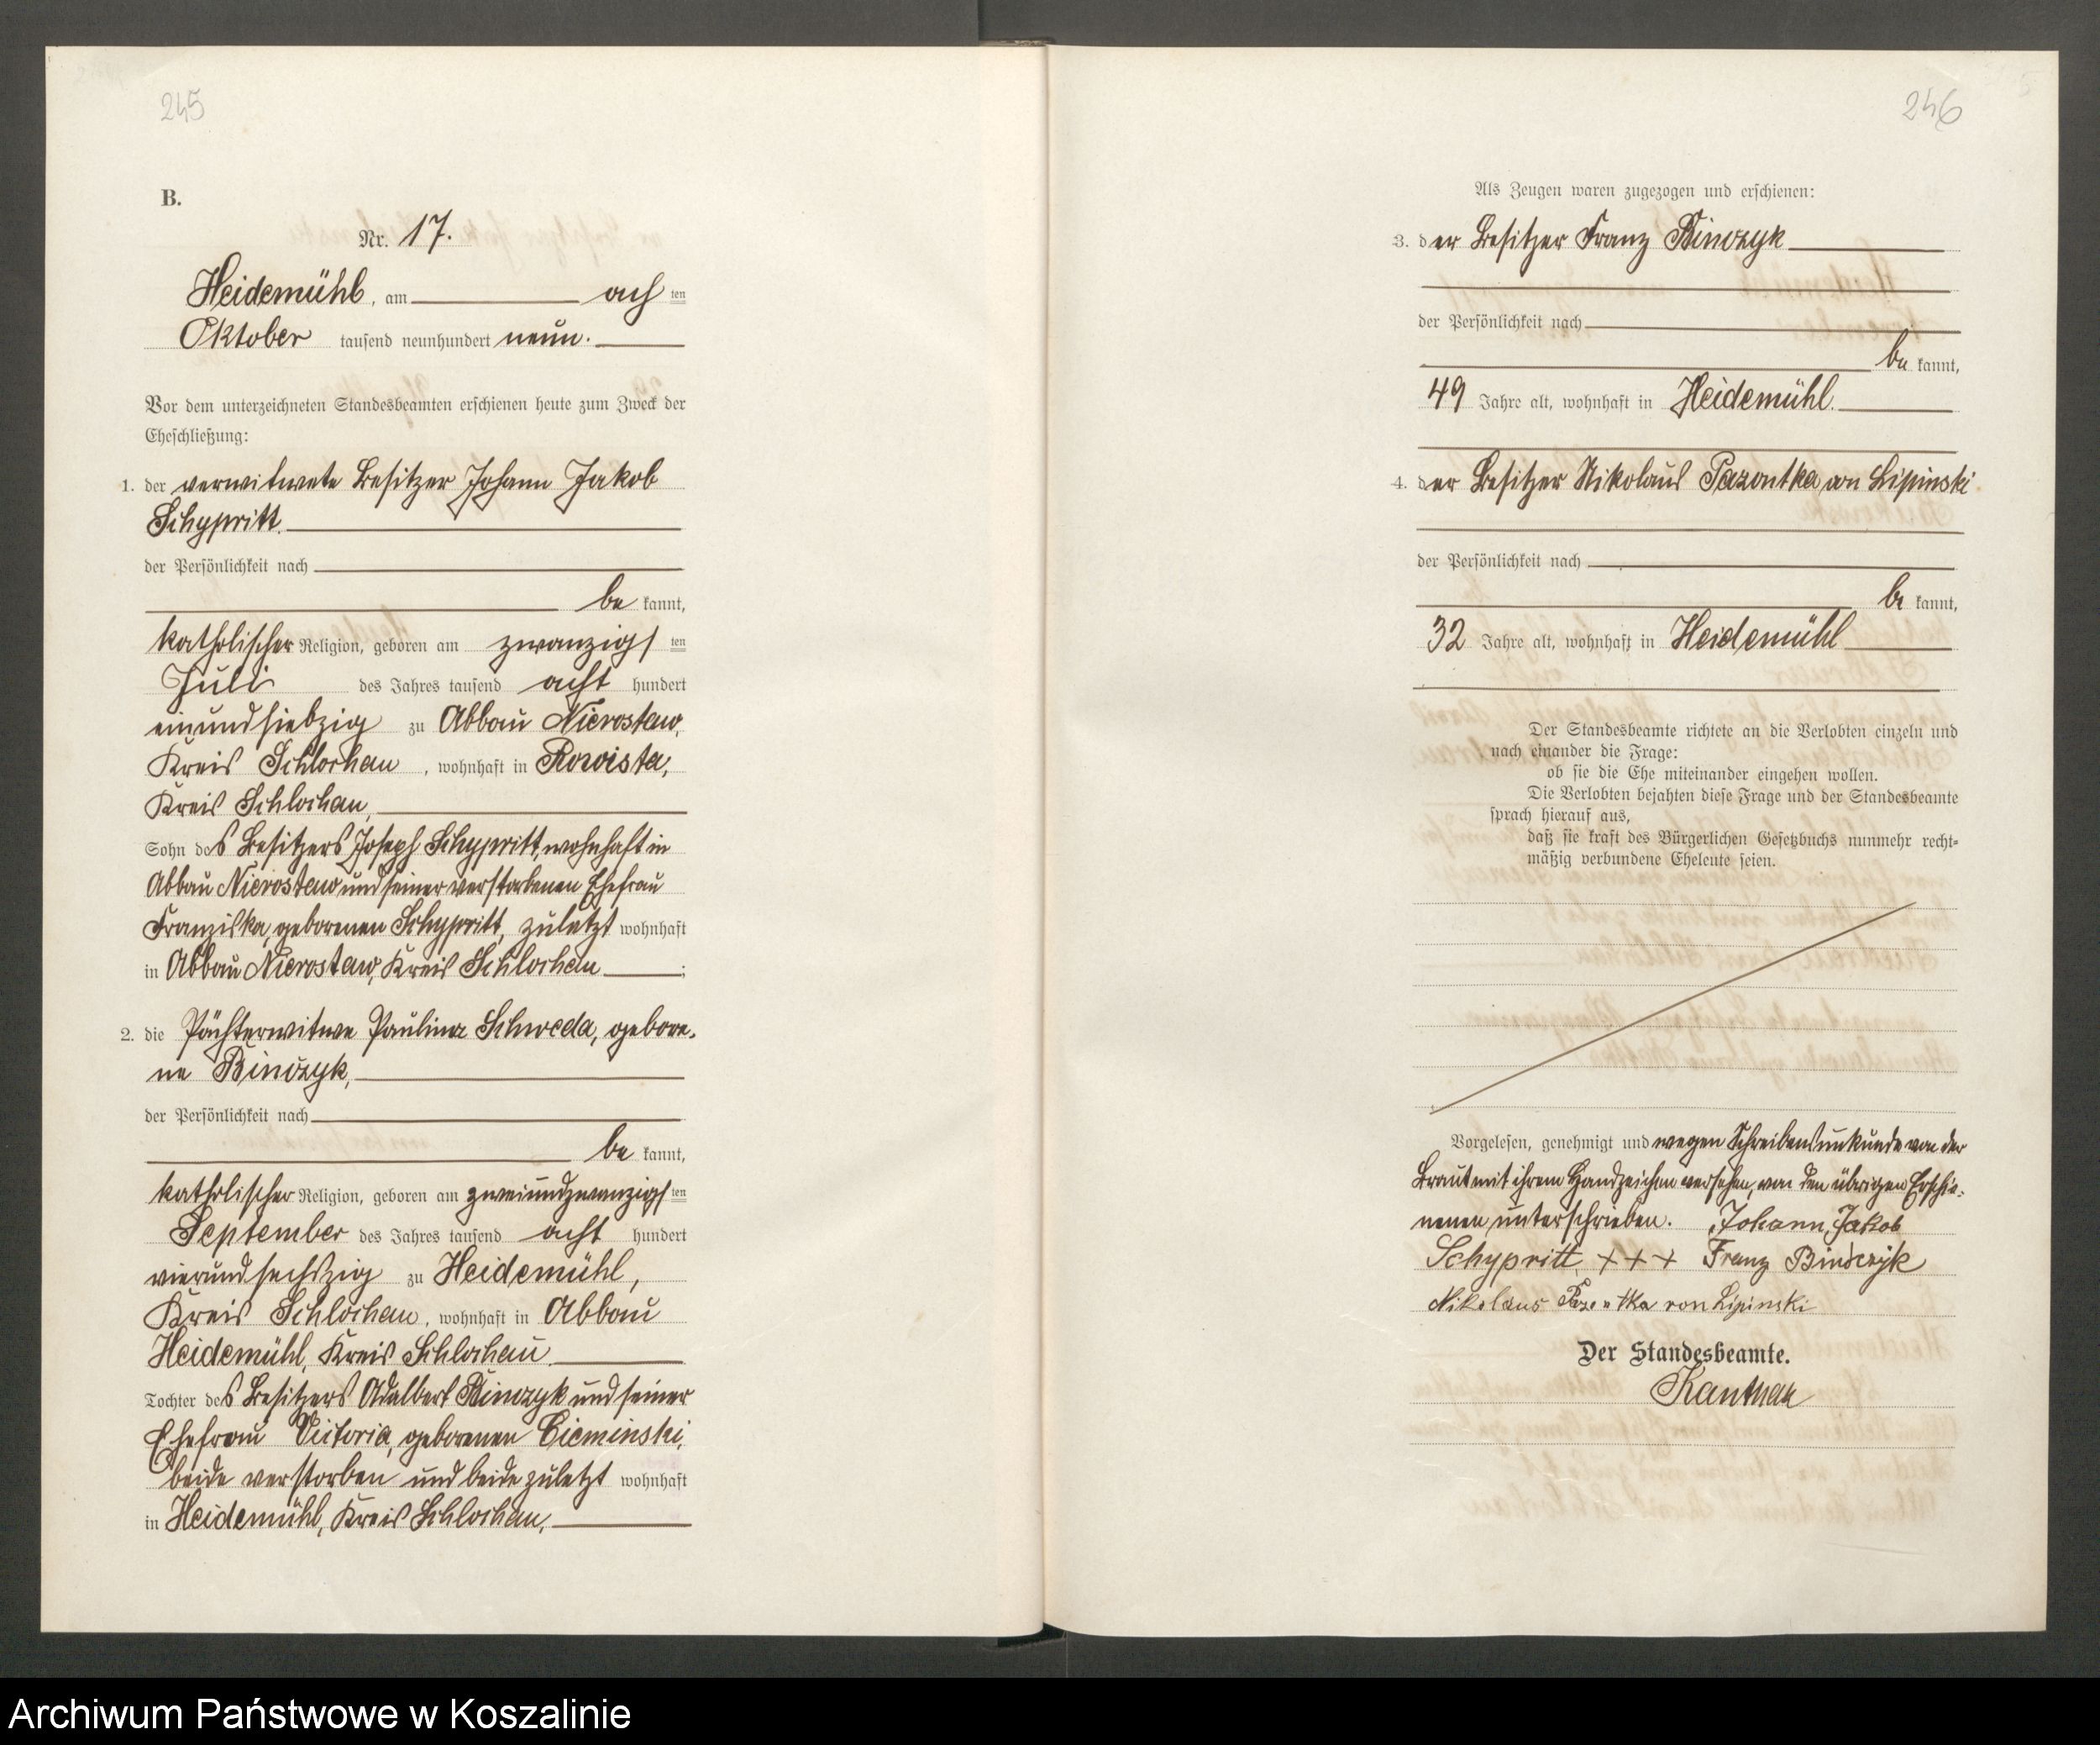 245
B.
Nr. 17.
Heidemühl, am ach ten
Oktober tausend neunhundert neun.
Vor dem unterzeichneten Standesbeamten erschienen heute zum Zweck der
Eheschließung:
1. der verwitwete Besitzer Johann Jakob
Schypritt.
der Persönlichkeit nach
be kannt,
katholischer Religion, geboren am zwanzigs ten
Juli des Jahres tausend acht hundert
einundsiebzig zu Abbau Nierostaw,
Kreis Schlochau, wohnhaft in
Kreis Schlochau,
Sohn des Besitzers Joseph Schypritt, wohnhaft in
Abbau Nierostaw und seiner verstorbenen Ehefrau
Franziska, geborenen Schypritt, zuletzt wohnhaft
in Abbau Nierostaw, Kreis Schlochau ;
2. die Pächterwitwe Pauline Schweda, gebore-
ne Binczyk,
der Persönlichkeit nach
be kannt,
katholischer Religion, geboren am zweiundzwanzigs ten
September des Jahres tausend acht hundert
vierundsechszig zu Heidemühl,
Kreis Schlochau, wohnhaft in Abbau
Heidemühl, Kreis Schlochau
Tochter des Besitzers Adalbert Binczyk und seiner
Ehefrau Victoria, geborenen Cieminski,
beide verstorben und beide zuletzt wohnhaft
in Heidemühl, Kreis Schlochau,
246
Als Zeugen waren zugezogen und erschienen:
3. der Besitzer Franz Binczyk
der Persönlichkeit nach
be kannt,
49 Jahre alt, wohnhaft in Heidemühl.
4. der Besitzer Nikolaus Pazontka von Lipinski
der Persönlichkeit nach
be kannt,
32 Jahre alt, wohnhaft in Heidemühl
Der Standesbeamte richtete an die Verlobten einzeln und
nach einander die Frage:
ob sie die Ehe miteinander eingehen wollen.
Die Verlobten bejahten diese Frage und der Standesbeamte
sprach hierauf aus,
daß sie kraft des Bürgerlichen Gesetzbuchs nunmehr recht-
mäßig verbundene Eheleute seien.
Vorgelesen, genehmigt und wegen Schreibensunkunde von der
Braut mit ihrem Handzeichen versehen, von den übrigen Erschie-
nenen unterschrieben. Johann Jakob
Schypritt, +++ Franz Binczyk
Nikolaus Pazontka von Lipinski
Der Standesbeamte.
Archiwum Państwowe w Koszalinie